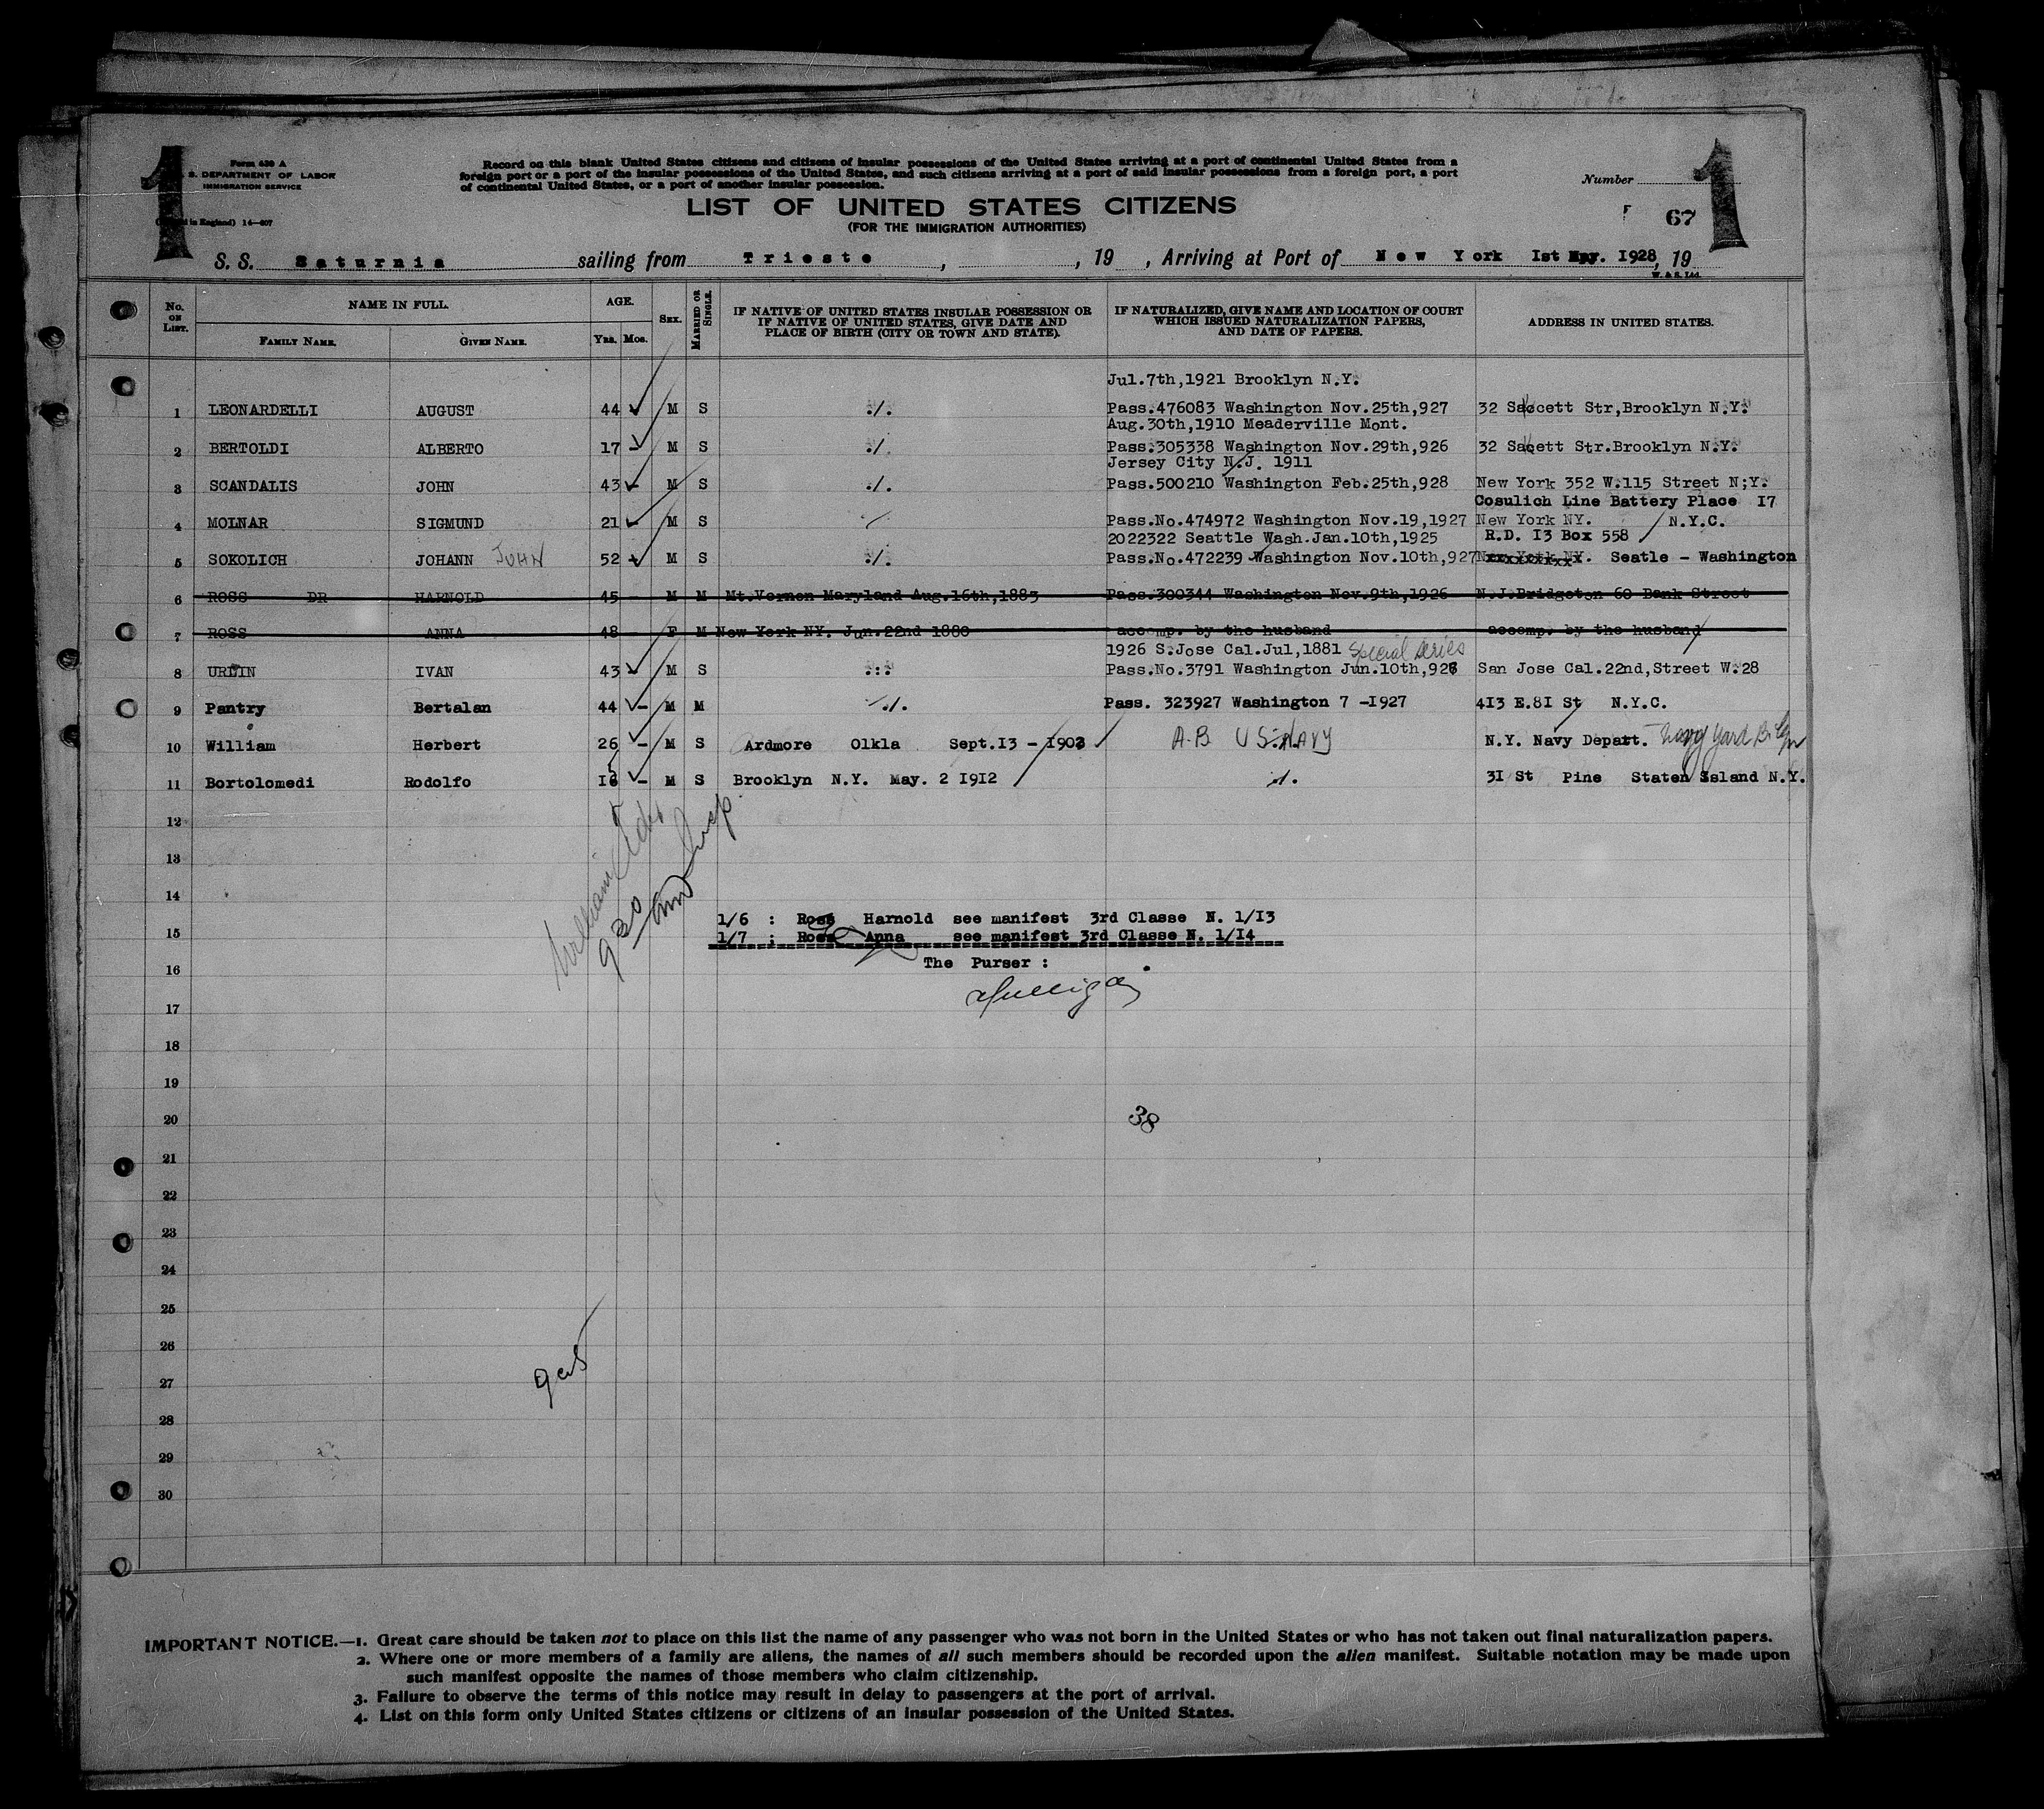 1
1
Form 630 A
S. DEPARTMENT OF LABOR
IMMIGRATION SERVICE
in England) 14—607
Record on this blank United States citizens and citizens of insular possessions of the United States arriving at a port of continental United States from a
foreign port or a port of the insular possessions of the United States, and such citizens arriving at a port of said insular possessions from a foreign port, a port
of continental United States, or a port of another insular possession.
Number
LIST OF UNITED STATES CITIZENS
(FOR THE IMMIGRATION AUTHORITIES)
67
S. S. Saturnia sailing from Trieste , , 19 , Arriving at Port of New York 1st May. 1928, 19
W. & S. Ltd.
No. ON LIST.
NAME IN FULL.
FAMILY NAME.
GIVEN NAME.
AGE.
YRS. MOS.
SEX.
MARRIED OR SINGLE.
IF NATIVE OF UNITED STATES INSULAR POSSESSION OR
IF NATIVE OF UNITED STATES, GIVE DATE AND
PLACE OF BIRTH (CITY OR TOWN AND STATE).
IF NATURALIZED, GIVE NAME AND LOCATION OF COURT
WHICH ISSUED NATURALIZATION PAPERS,
AND DATE OF PAPERS.
ADDRESS IN UNITED STATES.
Jul.7th,1921 Brooklyn N.Y.
1 LEONARDELLI AUGUST 44 M S ./. Pass.476083 Washington Nov.25th,927 32 Sackett Str,Brooklyn N.Y.
Aug.30th,1910 Meaderville Mont.
2 BERTOLDI ALBERTO 17 - M S ./. Pass.305338 Washington Nov.29th,926 32 Sackett Str.Brooklyn N.Y.
Jersey City N.J. 1911
3 SCANDALIS JOHN 43 - M S ./. Pass.500210 Washington Feb.25th,928 New York 352 W.115 Street N;Y.
Cosulich Line Battery Place 17
4 MOLNAR SIGMUND 21 - M S Pass.No.474972 Washington Nov.19,1927 New York NY. N.Y.C.
2022322 Seattle Wash.Jan.10th,1925 R.D. 13 Box 558
5 SOKOLICH JOHANN JOHN 52 - M S ./. Pass.No.472239 Washington Nov.10th,927 New York NY. Seatle - Washington
6 ROSS DR HARNOLD 45 - M M Mt.Vernon Maryland Aug.16th,1883 Pass.300344 Washington Nov.9th,1926 N.J.Bridgeton 60 Bank Street
7 ROSS ANNA 48 - F M New York NY. Jun.22nd 1880 accomp. by the husband accomp. by the husband
1926 S.Jose Cal.Jul,1881 Special Series
8 URLIN IVAN 43 - M S .:. Pass.No.3791 Washington Jun.10th,926 San Jose Cal.22nd,Street W.28
9 Pantry Bertalan 44 - M M ./. Pass. 323927 Washington 7 -1927 413 E.81 St N.Y.C.
10 William Herbert 26 - M S Ardmore Olkla Sept.13 - 1902 A-B U S. NAVY N.Y. Navy Depart. Navy Yard Bklyn
11 Bortolomedi Rodolfo 16 5 - M S Brooklyn N.Y. May. 2 1912 ./. 31 St Pine Staten Island N.Y.
12
13
14
1/6 : Ross Harnold see manifest 3rd Classe N. 1/13
15
1/7 : Ross Anna see manifest 3rd Classe N. 1/14
The Purser :
16
17
18
19
20
38
21
22
23
24
25
26
27
28
29
30
IMPORTANT NOTICE.—1. Great care should be taken not to place on this list the name of any passenger who was not born in the United States or who has not taken out final naturalization papers.
2. Where one or more members of a family are aliens, the names of all such members should be recorded upon the alien manifest. Suitable notation may be made upon
such manifest opposite the names of those members who claim citizenship.
3. Failure to observe the terms of this notice may result in delay to passengers at the port of arrival.
4. List on this form only United States citizens or citizens of an insular possession of the United States.